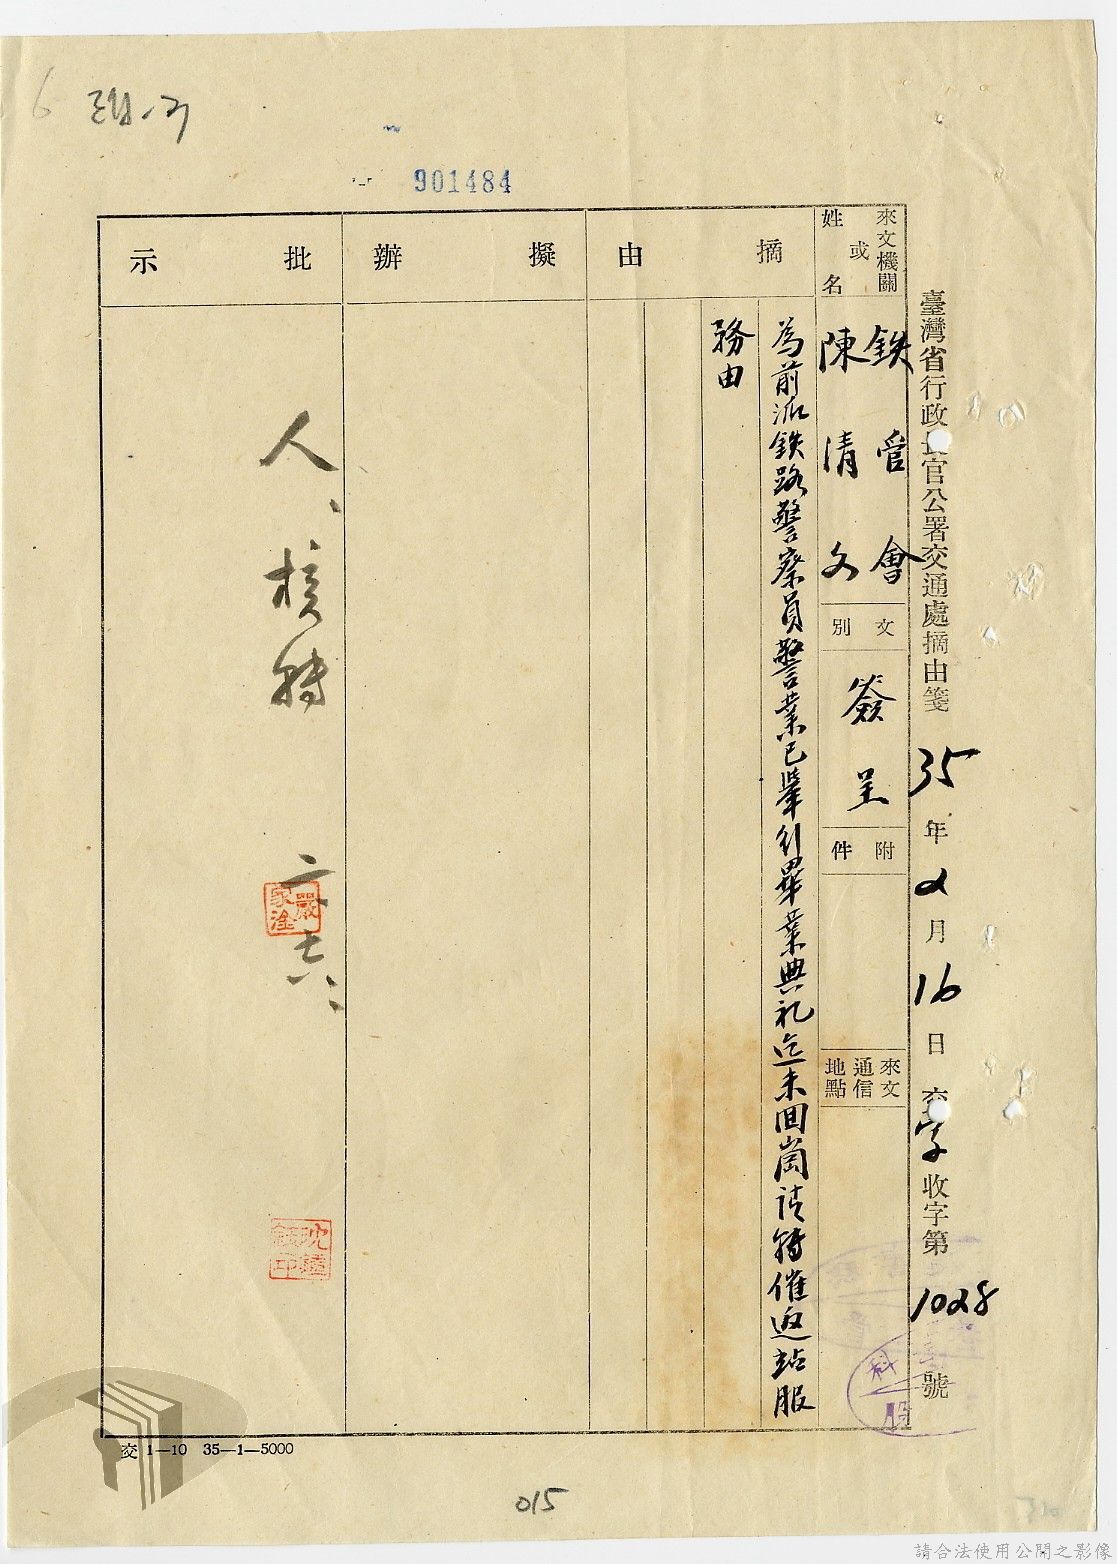 901484
臺灣省行政長官公署交通處摘由箋 35年2月16日 交字收字第1028號
來文機關或姓名
鉄管會
陳清文
文別
簽呈
附件
來文通信地點
摘由
為前派鉄路警察員警業已舉行畢業典礼迄未回崗請轉催返站服
務由
擬辦
批示
人、核轉
嚴家淦
二、十六、
交 1—10 35—1—5000
015
請合法使用公開之影像